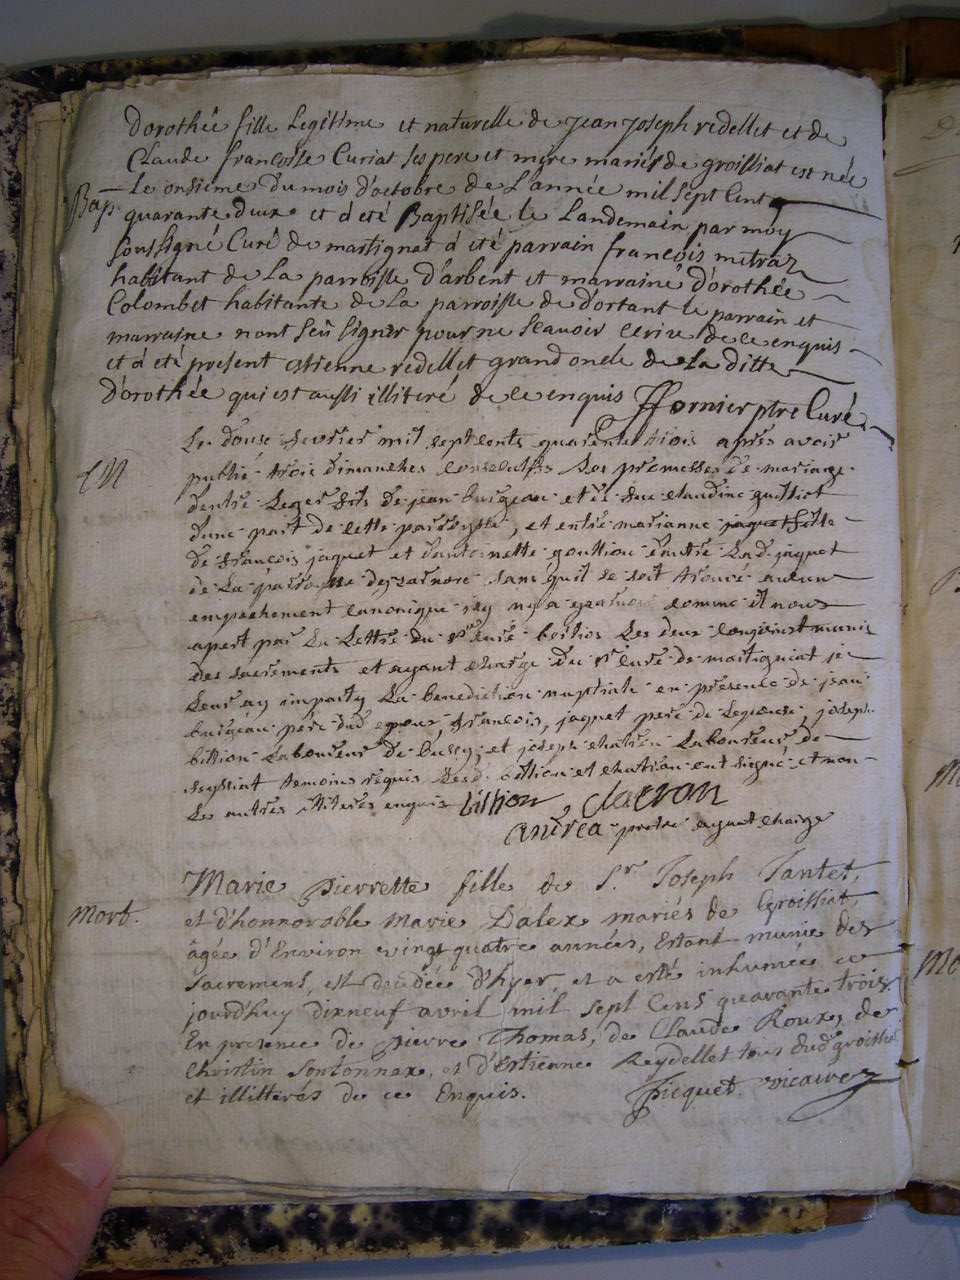 Dorothée fille Legitime et naturelle de jean joseph redellet et de
Claude francoise Curiat ses pere et mere mariés de groissiat est née
Le onsieme du mois d'octobre de L'année mil sept Cent
Bap. quarante deux et a été Baptisée le Landemain par moy
soussigné Curé de martignat a été parrain francois metraz
habitant de La parroisse d'arbent et marraine D'orothée
Colombet habitante de La parroisse de d'ortant le parrain et
marraine n'ont sçû signer pour ne scavoir ecrire de ce enquis
et a été present estienne redellet grand oncle de La ditte
D'orothée qui est aussi illiteré de ce enquis fornier ptre Curé
Le douse fevrier mil sept cents quarente trois apres avoir
publié trois dimanches consecutifs Les promesses de mariage
d'entre Leger fils de jean buigeau et de fue claudine guilliot
d'une part de cette parroysse, et entre marianne jaquet fille
de francois jaquet et d'antoinette goullion d'autre La d. jaquet
de La parroysse sans quil se soit trouvé aucun
empechement canonique comme il nous
apert par La Lettre du Sr curé Les deux munis
des sacrements et ayant charge du Sr curé de martigniat je
Leur ay imparty La benediction nuptiale en presence de jean
buigeau pere dud epoux, francois jaquet pere de Lepouse, joseph
billion Laboureur de bussy, et joseph chatron Laboureur de
temoins requis Lesd. billion et chatron ont signé, et non
Les autres illiterés enquis billion, clatron
andrea pretre ayant charge
Marie Pierrette fille de S.r Joseph Tantet,
Mort. et d'honnorable Marie Dalex mariés de Groissiat,
âgée d'Environ vingt quatre années, Estant munie des
Sacremens, est decedée D'hyer, et a esté inhumée ce
jourd'huy dixneuf avril mil sept Cens quarante trois
En presence de Pierre Thomas, de Claude Roux, de
Christin Sontonnax, et d'Estienne Reydellet tous dud groissiat
et illitterés de ce Enquis. Picquet vicaire